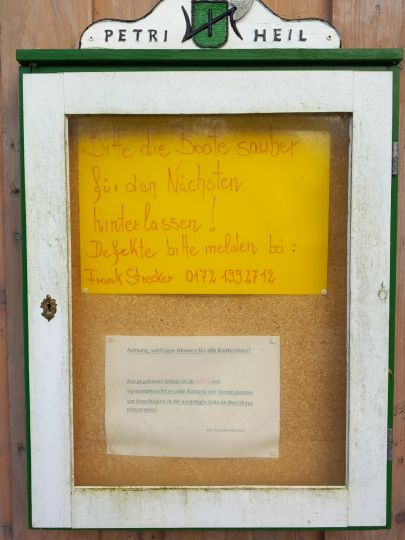 PETRI HEIL
Bitte die Boote sauber
für den Nächsten
hinterlassen!
Defekte bitte melden bei:
Frank Strecker 0172 1992712
Achtung, wichtiger Hinweis für alle Bootsnutzer!
Aus gegebenen Anlass ist ab laut
Vorstandsbeschluss jede Nutzung von Vereinsbooten
vor Angelbeginn in die ausgelegte Liste im Bootshaus
einzutragen!